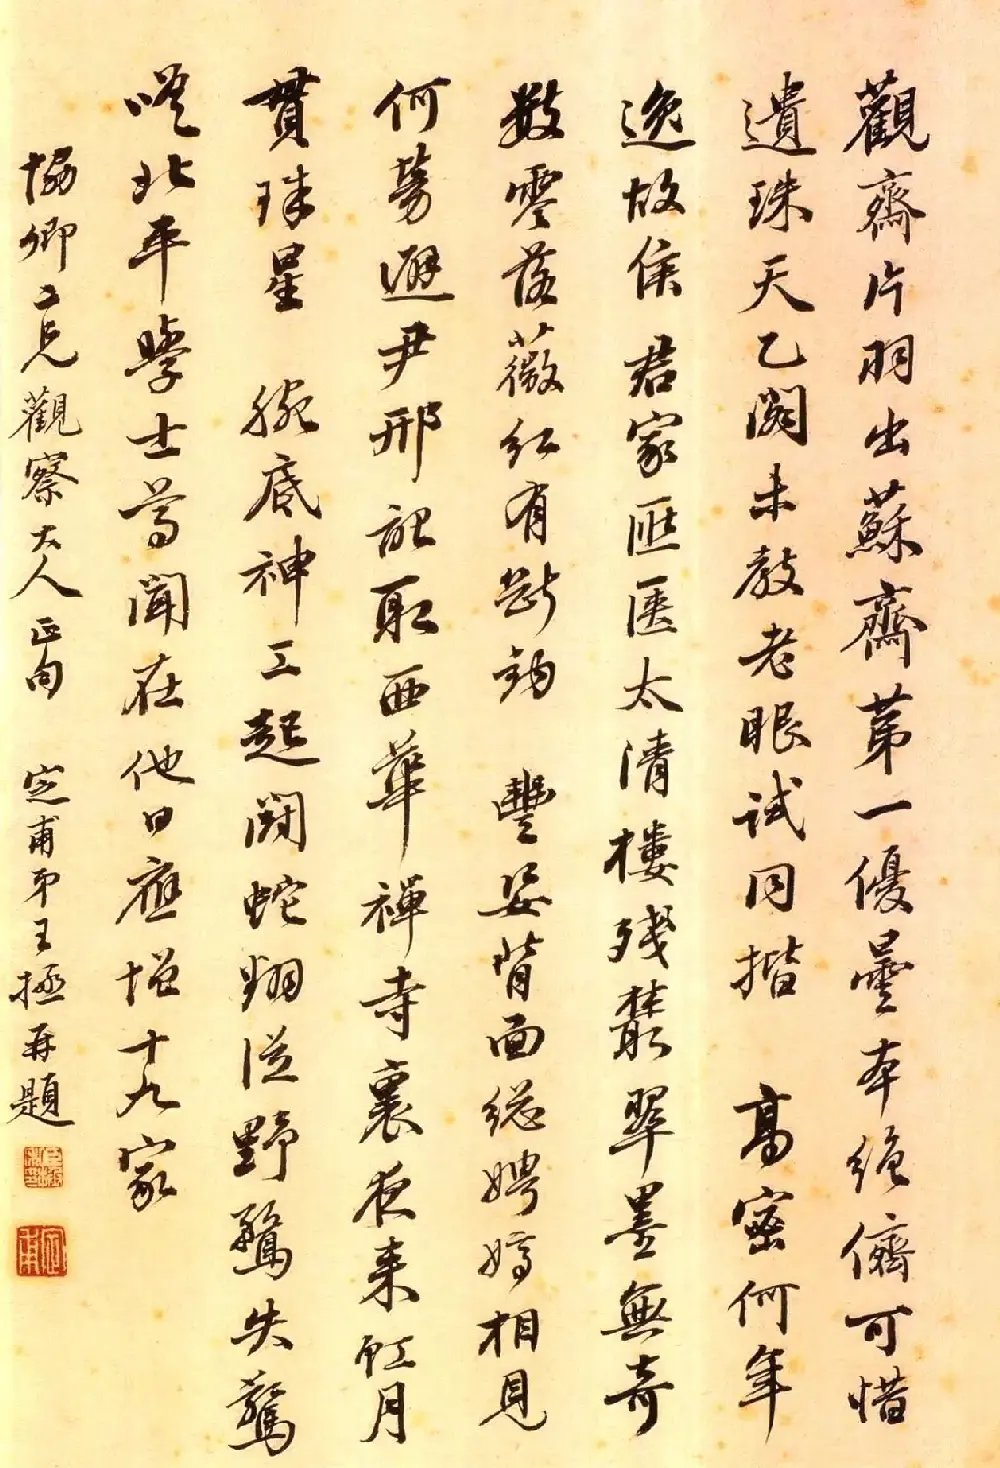 觀齋片羽出蘇齋第一優曇本絕儕可惜
遺珠天乙閣未教老眼試同揩 高密何年
逸故侯君家匧匧太清樓殘叢翠墨無奇
數零落薇紅有斷 豐姿背面總娉婷相見
何勞避尹邢訛取西華禪寺裏夜來虹月
貫珠星 腕底神工起鬪蛇翔從野鶩失驚
嗟北平學士等聞在他日應增十九家
協卿二兄觀察大人正句 定甫弟王拯再題